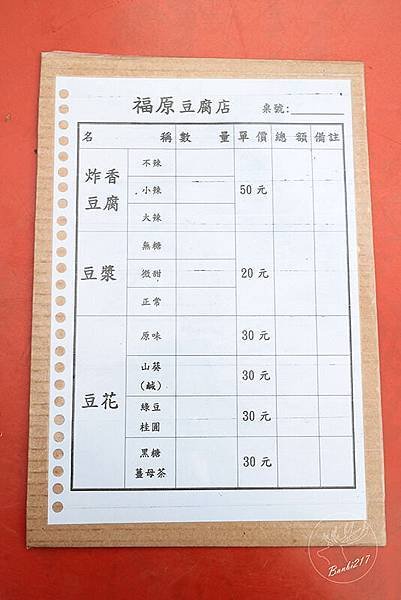 福原豆腐店 桌號:
名稱 數量 單價 總額 備註
炸香
豆腐
不辣
小辣 50元
大辣
豆漿
無糖
微甜 20元
正常
豆花
原味 30元
山葵
(鹹) 30元
綠豆
桂圓 30元
黑糖
薑母茶 30元
Banbi217